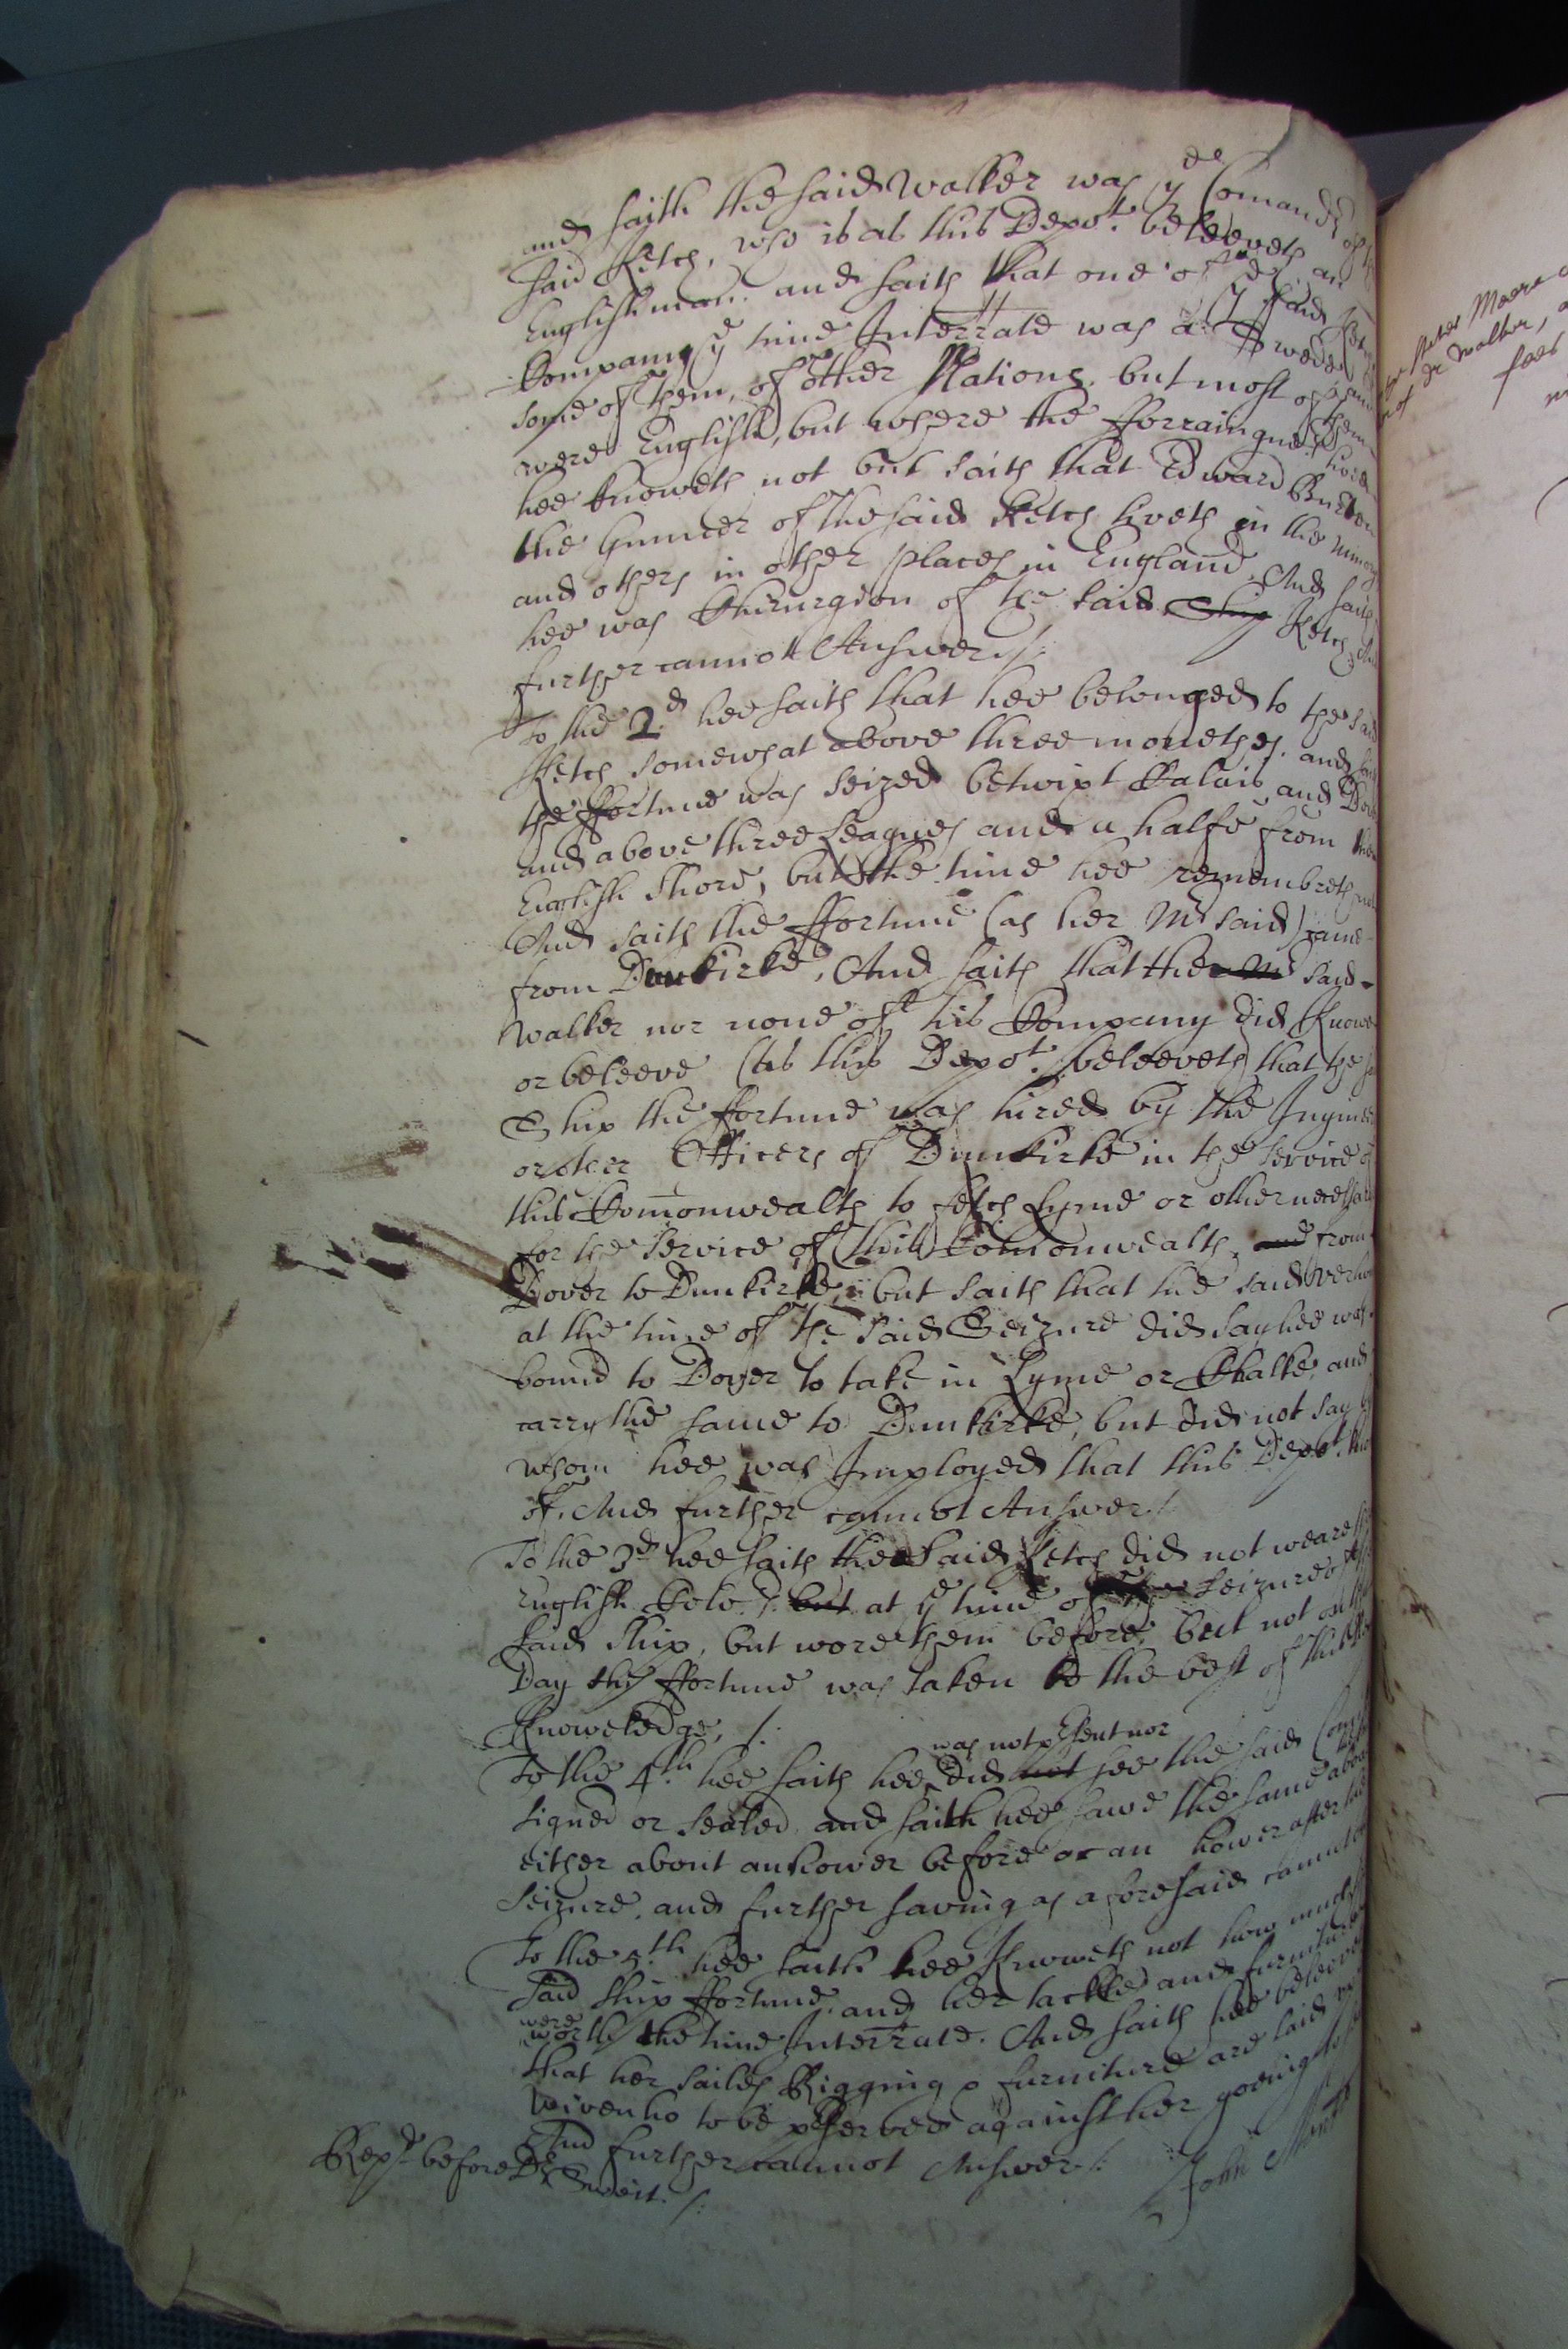 and saith the said Walker was ye Comandr of the
said Ketch, who is as this Depot. beleeveth an
Englishman. and saith that one of ye said Ketches
Company ye time Interrate was a Swede, and
some of them, of other Nations. but most of them
were English, but where the fforraingners live
hee knoweth not but saith that Edward
the Gunner of the said Ketch liveth in the
and others in other places in England, And saith
hee was Chirurgion of the said Ship Ketch, And
further cannot Answer./:
To the 2d. hee saith that hee belonged to the said
Ketch somewhat above three monethes. and saith
the ffortune was seized betwixt Calais and Dover
and above three Leagues and a halfe from the
English Shore, but the time hee remembreth not
And saith the ffortune (as her Mr said) came
from Dunkirke, And saith that the Mr said
Walker nor none of his Company did Knowe
or beleeve (as this Depot. beleeveth) that the sd
Ship the ffortune was hired by the
or other Officers of Dunkirke in the service of
this Comonwealth to fetch Lyme or other necessaries
for the Service of this Comonwealth, and from
Dover to Dunkirke, but saith that the said
at the time of the said Seizure did say hee was
bound to Dover to take in Lyme or Chalke, and
carry the same to Dunkirke, but did not say by
whom hee was Imployed that this Depot. knoweth
of. And further cannot Answer./.
To the 3d hee saith the said Ketch did not weare
English Colo.rs but at ye time of the seizure of the
said Ship, but wore them before, but not on the
Day the ffortune was taken to the best of this
Knowledge, /:
was not pesent nor
To the 4th. hee saith hee did not see the said
signed or sealed, and saith hee sawe the same
either about an hower before or an hower after the
seizure, and further saving as aforesaid cannot
To the 5th. hee saith hee Knoweth not how much
said ship ffortune, and her tackle and furniture
were
worth the time Interrate. And saith hee beleeveth
that her sailes Rigging & furniture are laid
Wivenho to be pserved against her goeing to
And further cannot Answer./:
Repd. before Dr
Sweit. /:
John
Peter Moore
of Dr Walker,